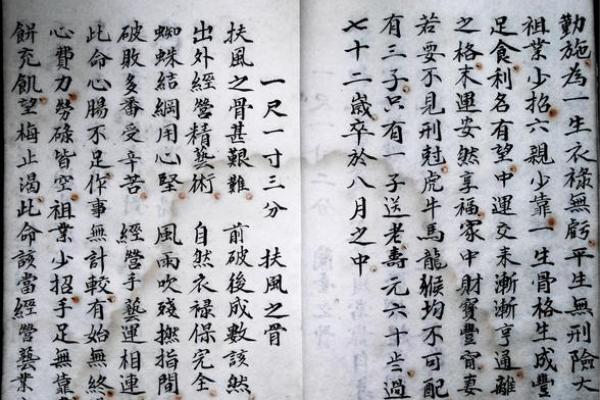 勤施為一生衣祿無虧平生無刑險大
祖業少招六親少靠一生骨格生成豐
足食利名有望中運交來漸漸亨通離
之格末運安然享福家中財寶豐甯妻
若要不見刑尅虎牛馬龍猴均不可配
有三子只有一子送老壽元六十些過
七十二歲卒於八月之中
一尺一寸三分 扶風之骨
扶風之骨甚艱難 前破後成數該然
出外經營精藝術 自然衣祿保完全
蜘蛛結綱用心堅 風雨吹殘撫指間
破敗多番受辛苦 經營手藝運相連
此命心腸不足作事無計較有始無終
心費力勞碌皆空祖業少招手足無靠
餅充飢望梅止渴此命該當經營藝業